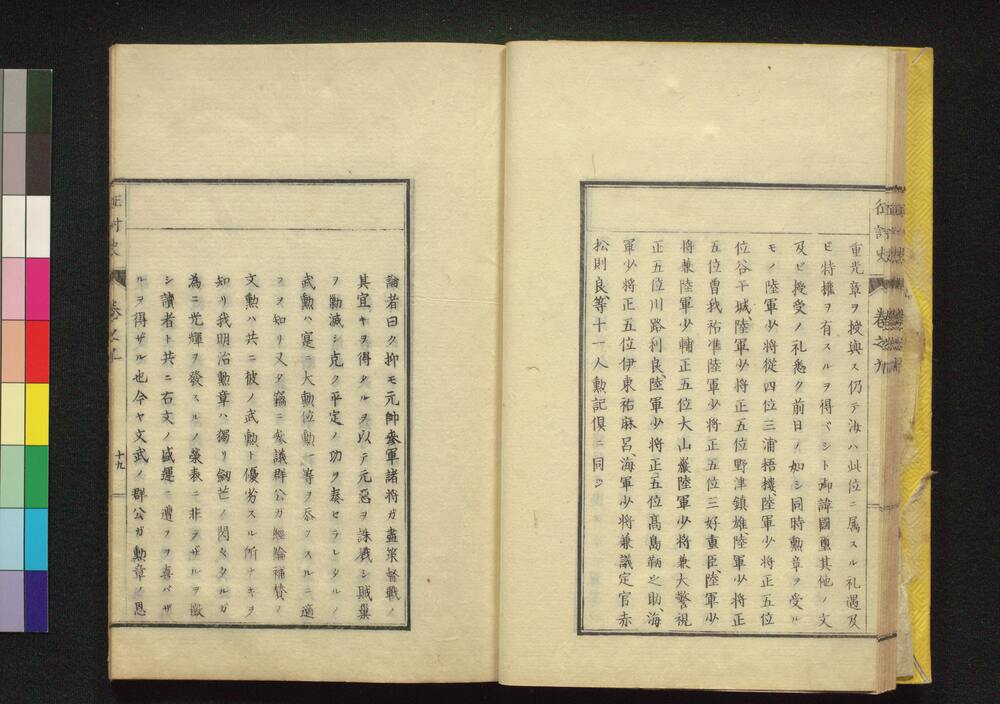 征討史 巻之九
重光章ヲ授與ス仍テ汝ハ此位ニ属スル礼遇及
ヒ特権ヲ有スルヲ得ベシト御諱國璽其他ノ文
及ビ授受ノ礼悉ク前日ノ如シ同時勲章ヲ受ル
モノ陸軍少将従四位三浦梧樓、陸軍少将正五位
位谷干城、陸軍少将正五位野津鎮雄、陸軍少将正
五位曽我祐凖陸軍少将正五位三好重臣、陸軍少
将兼陸軍少輔正五位大山巌陸軍少将兼大警視
正五位川路利良、陸軍少将正五位髙島鞆之助、海
軍少将正五位伊東祐麻呂、海軍少将兼議定官赤
松則良、等十一人勲記倶ニ同シ
論者曰ク抑モ元帥参軍諸将ガ畫策督戰ノ
其宜キヲ得タルヲ以テ元惡ヲ誅戮シ賊巢
ヲ勦滅シ克ク平定ノ功ヲ奏セラレタルノ
武勲ハ寔ニ大勲位勲一等ヲ忝フスルニ適
スヲ知リ又タ竊ニ参議群公ガ經綸補賛ノ
文勲ハ共ニ彼ノ武勲ト優劣スル所ナキヲ
知リ我明治勲章ハ獨リ劔芒ノ閃々タルガ
為ニ光輝ヲ發スルノ榮表ニ非ラザルヲ徴
シ讀者ト共ニ右文ノ盛運ニ遭フヲ喜バザ
ルヲ得ザル也今ヤ文武ノ群公ガ勲章ノ恩
征討史 巻之九 十九